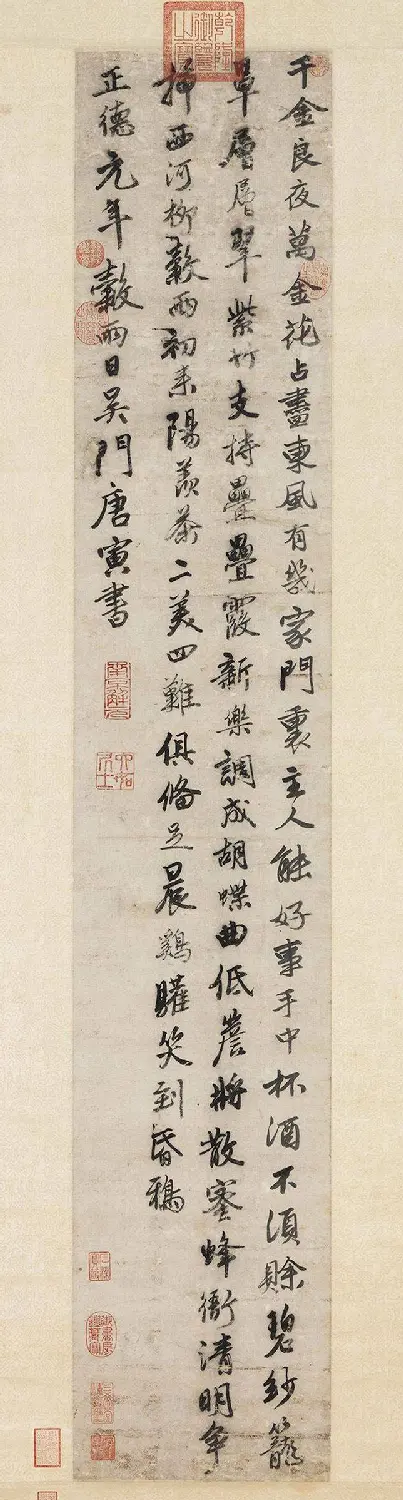 乾隆御覽之寶
千金良夜萬金花占盡東風有幾家門裏主人能好事手中杯酒不須賖碧紗籠
罩層層翠紫竹支持疊疊霞新樂調成胡蝶曲低簷將散蜜蜂衙清明爭
插西河柳穀雨初來陽羨茶二美四難俱備足晨鷄驩笑到昏鴉
正德元年穀雨日吳門唐寅書
南京解元
六如居士